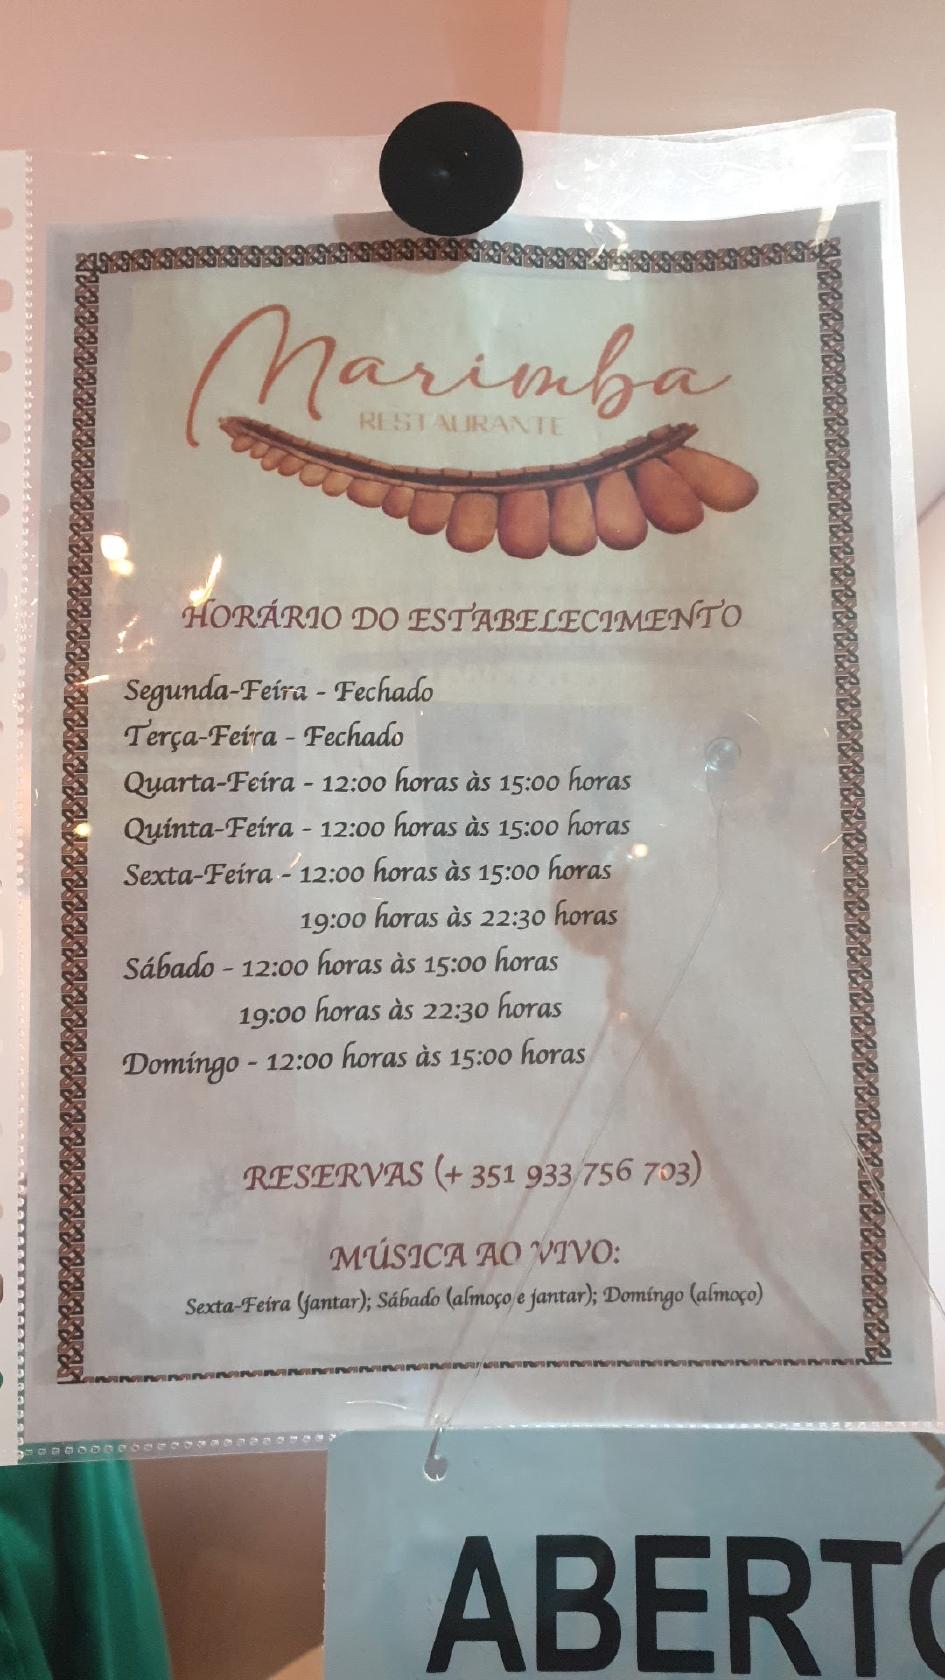 Marimba
RESTAURANTE
HORÁRIO DO ESTABELECIMENTO
Segunda-Feira - Fechado
Terça-Feira - Fechado
Quarta-Feira - 12:00 horas às 15:00 horas
Quinta-Feira - 12:00 horas às 15:00 horas
Sexta-Feira - 12:00 horas às 15:00 horas
19:00 horas às 22:30 horas
Sábado - 12:00 horas às 15:00 horas
19:00 horas às 22:30 horas
Domingo - 12:00 horas às 15:00 horas
RESERVAS (+ 351 933 756 703)
MÚSICA AO VIVO:
Sexta-Feira (jantar); Sábado (almoço e jantar); Domingo (almoço)
ABERTO